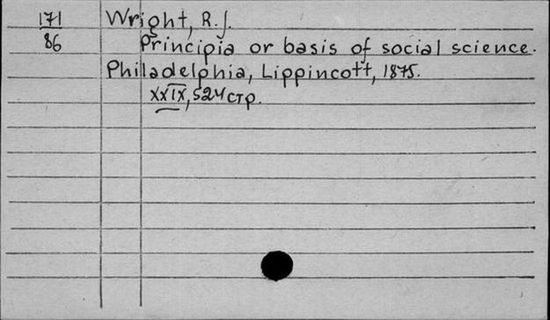 171 Wright, R. J.
86 Principia or basis of social science.
Philadelphia, Lippincott, 1875.
XXIX, 524 стр.